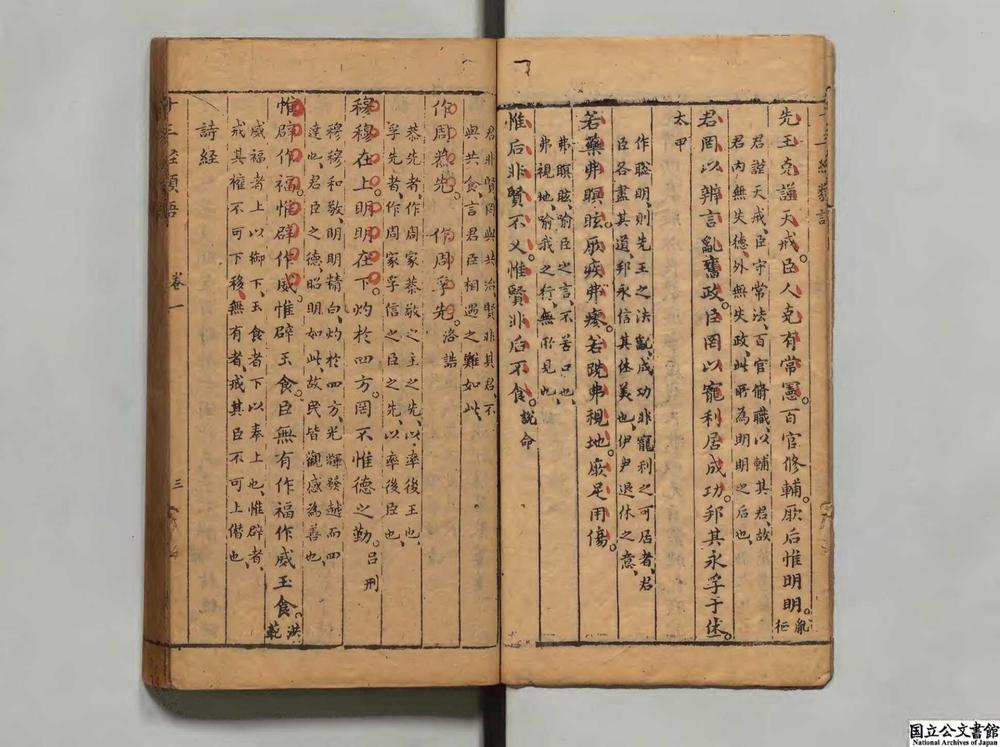 先王克謹天戒。臣人克有常憲。百官修輔。厥后惟明明。胤征
君謹天戒、臣守常法、百官脩職、以輔其君、故
君內無失德、外無失政、此所為明明之后也、
君罔以辨言亂舊政。臣罔以寵利居成功。邦其永孚于休。
太甲
作聡明、則先王之法亂、成功非寵利之可居者、君
臣各盡其道、邦永信其休美也、伊尹退休之意、
若藥弗瞑眩。厥疾弗瘳。若跣弗視地。厥足用傷。
弗瞑眩、喻臣之言、不苦口也、
弗視地、喻我之行、無所見也、
惟后非賢不乂。惟賢非后不食。說命
君非賢罔與共治、賢非其君、不
與共食、言君臣相遇之難如此、
作周恭先。作周孚先。洛誥
恭先者、作周家恭敬之主之先、以率後王也、
孚先者、作周家孚信之臣之先、以率後臣也、
穆穆在上。明明在下。灼於四方。罔不惟德之勤。呂刑
穆穆和敬、明明精白、灼於四方、光輝發越而四
達也、君臣之德、昭明如此、故民皆觀感為善也、
惟辟作福。惟辟作威。惟辟玉食。臣無有作福作威玉食。洪範
威福者、上以御下、玉食者、下以奉上也、惟辟者、
戒其權不可下移、無有者、戒其臣不可上僭也、
詩経
十三経類語 卷一 三
国立公文書館
National Archives of Japan